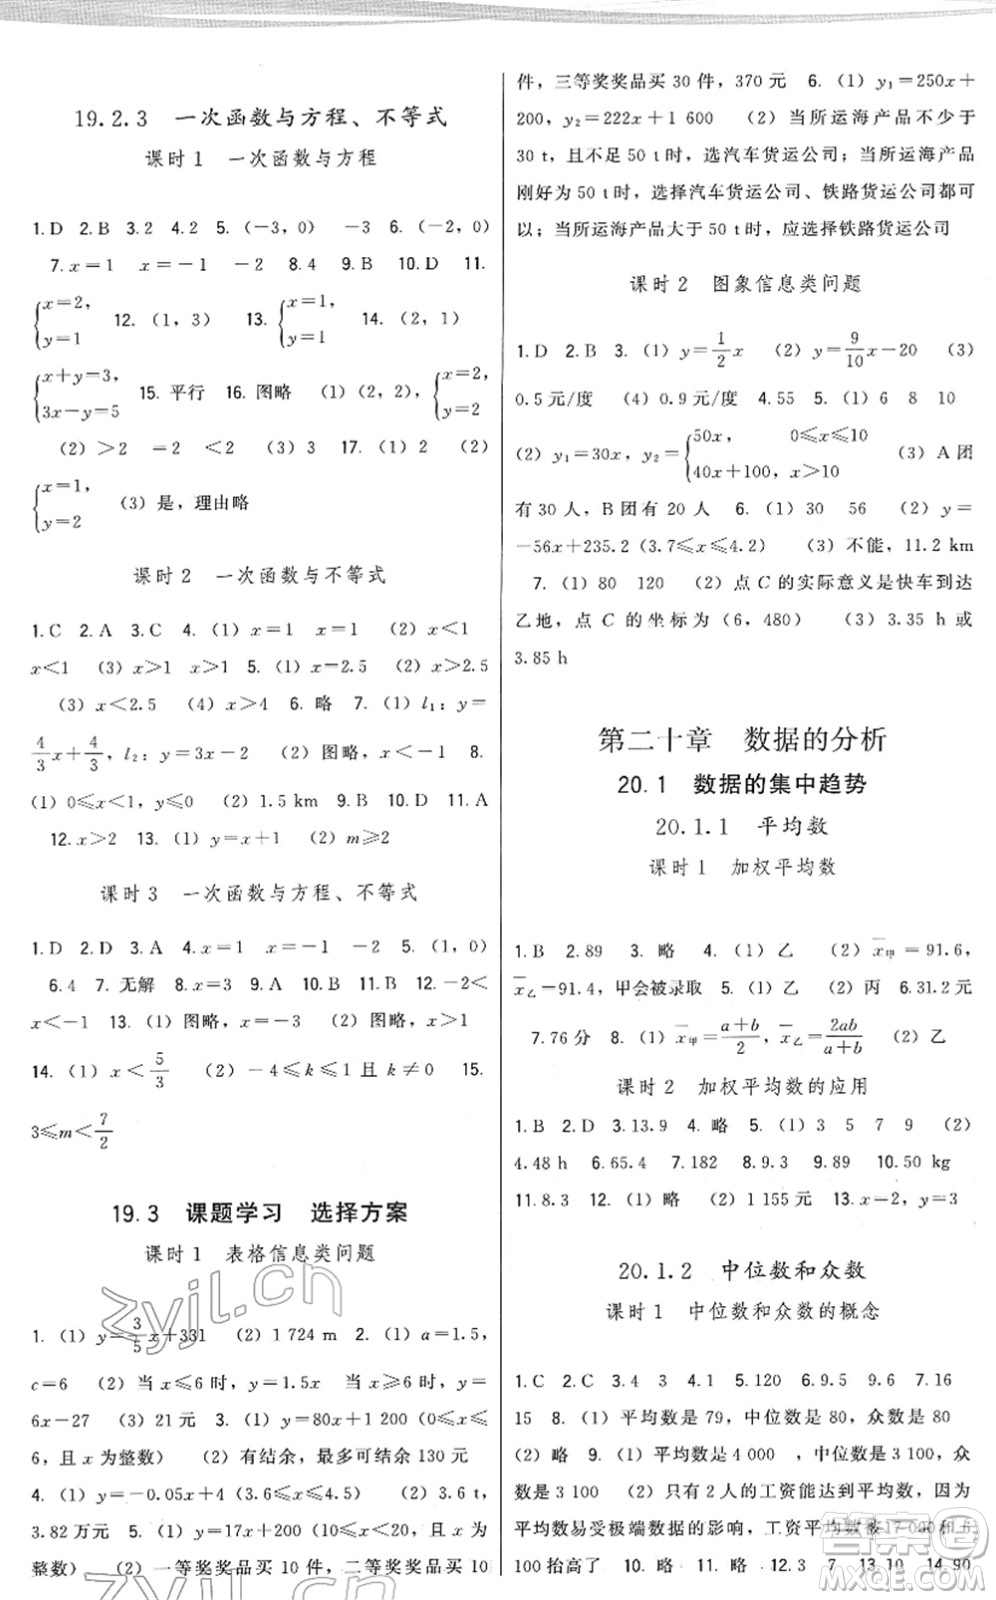 19.2.3 一次函数与方程、不等式
课时1 一次函数与方程
1.D 2.B 3.2 4.2 5.(-3,0) -3 6.(-2,0)
7.x=1 x=-1 -2 8.4 9.B 10.D 11.
{x=2, y=1 12.(1,3) 13.{x=1, y=1 14.(2,1)
{x+y=3, 3x-y=5 15.平行 16.图略 (1)(2,2),{x=2, y=2
(2)>2 =2 <2 (3)3 17.(1)2 (2)
{x=1, y=2 (3)是,理由略
课时2 一次函数与不等式
1.C 2.A 3.C 4.(1)x=1 x=1 (2)x<1
x<1 (3)x>1 x>1 5.(1)x=2.5 (2)x>2.5
(3)x<2.5 (4)x>4 6.略 7.(1)l₁:y=
4/3x+4/3,l₂:y=-3x-2 (2)图略,x<-1 8.
(1)0≤x<1,y≤0 (2)1.5 km 9.B 10.D 11.A
12.x>2 13.(1)y=x+1 (2)m≥2
课时3 一次函数与方程、不等式
1.D 2.D 3.A 4.x=1 x=-1 -2 5.(1,0)
6.4 7.无解 8.x=3 9.A 10.B 11.B 12.-2<
x<-1 13.(1)图略,x=-3 (2)图略,x>1
14.(1)x<5/3 (2)-4≤k≤1且k≠0 15.
3≤m<7/2
19.3 课题学习 选择方案
课时1 表格信息类问题
1.(1)y=3/5x+331 (2)1 724 m 2.(1)a=1.5,
c=6 (2)当x≤6时,y=1.5x 当x>6时,y=
6x-27 (3)21元 3.(1)y=80x+1 200(0≤x≤
6,且x为整数) (2)有结余,最多可结余130元
4.(1)y=-0.05x+4(3.6≤x≤4) (2)3.6 t,
3.82万元 5.(1)y=17x+200(0<x<10,且x为
整数) (2)一等奖奖品买10件,二等奖奖品买10
件,三等奖奖品买30件,370元 6.(1)y₁=250x+
200,y₂=222x+1 600 (2)当所运海产品不少于
30 t,且不足50 t时,选汽车货运公司;当所运海产品
刚好为50 t时,选择汽车货运公司、铁路货运公司都可
以;当所运海产品大于50 t时,应选择铁路货运公司
课时2 图象信息类问题
1.D 2.B 3.(1)y=1/2x (2)y=9/10x-20 (3)
0.5元/度 (4)0.9元/度 4.55 5.(1)6 8 10
(2)y₁=30x,y₂={50x, 0≤x≤10 40x+100,x>10 (3)A团
有30人,B团有20人 6.(1)30 56 (2)y=
-56x+235.2(3.7≤x≤4.2) (3)不能,11.2 km
7.(1)80 120 (2)点C的实际意义是快车到达
乙地,点C的坐标为(6,480) (3)3.35 h或
3.85 h
第二十章 数据的分析
20.1 数据的集中趋势
20.1.1 平均数
课时1 加权平均数
1.B 2.89 3.略 4.(1)乙 (2)x̄甲=91.6,
x̄乙=91.4,甲会被录取 5.(1)乙 (2)丙 6.31.2元
7.76分 8.(1)x̄甲=(a+b)/2,x̄乙=2ab/(a+b) (2)乙
课时2 加权平均数的应用
1.B 2.D 3.13.9 4.略 5.(1)3 5 7 9 (2)
4.48 h 6.65.4 7.182 8.9.3 9.89 10.50 kg
11.8.3 12.(1)略 (2)1 155元 13.x-2,y=3
20.1.2 中位数和众数
课时1 中位数和众数的概念
1.C 2.C 3.4 3 4.1 5.120 6.9.6 7.16
15 8.(1)平均数是79,中位数是80,众数是80
(2)略 9.(1)平均数是4 000 ,中位数是3 100,众
数是3 100 (2)只有2人的工资能达到平均数,因为
平均数易受极端数据的影响,工资平均数被17 000和6
100抬高了 10.略 11.略 12.3 7 13.10 14.90
zyjl.cn
zyjl.cn
答案圈
MXQE.COM